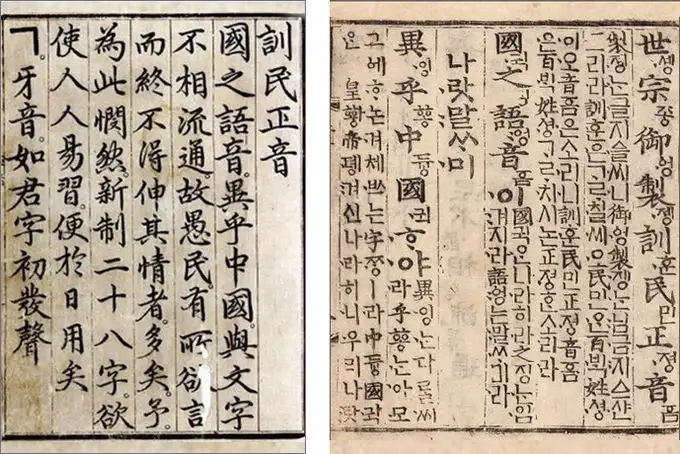 訓民正音
國之語音。異乎中國。與文字
不相流通。故愚民。有所欲言
而終不得伸其情者。多矣。予。
為此憫然。新制二十八字。欲
使人人易習。便於日用矣
ㄱ。牙音。如君字初發聲
世솅宗종御엉製졩訓훈民민正졍音흠
製졩는글지ᅀᅳᆯ씨니御엉製졩는님금지ᅀᅳ샨
그리라訓훈은ᄀᆞᄅᆞ칠씨오民민ᄋᆞᆫ百ᄇᆡᆨ姓셩
이오音흠은소리니訓훈民민正졍音흠
은百ᄇᆡᆨ姓셩ᄀᆞᄅᆞ치시논正졍ᄒᆞᆫ소리라
國귁之징語엉音흠이國귁ᄋᆞᆫ나라히라之징ᄂᆞᆫ입
겨지라語엉는말ᄊᆞ미라
나랏말ᄊᆞ미
異잉乎ᅘᅩᆼ中듕國귁ᄒᆞ야異잉ᄂᆞᆫ다ᄅᆞᆯ씨
라乎ᅘᅩᆼᄂᆞᆫ아모
그ᅌᅦᄒᆞ논겨체ᄡᅳ는字ᄍᆞᆼㅣ라中듕國귁
ᄋᆞᆫ皇ᅘᅪᆼ帝뎽겨신나라히니우리나랏